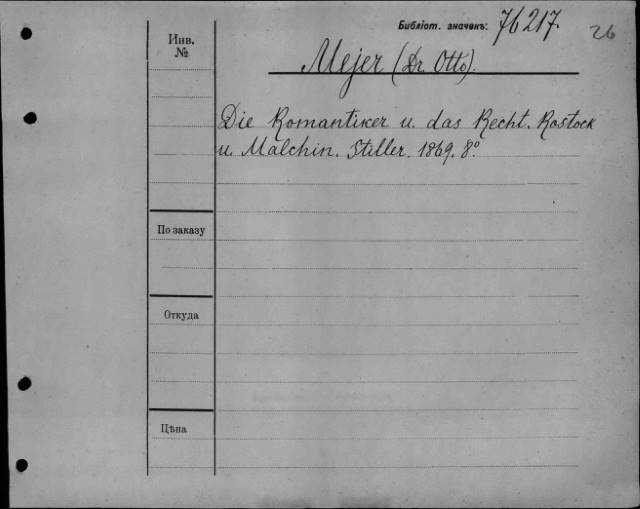 Библіот. значекъ: 76217.
26
Инв.
№
Mejer (Dr. Otto).
Die Romantiker u. das Recht. Rostock
u. Malchin. Stiller. 1869. 8º
По заказу
Откуда
Цѣна